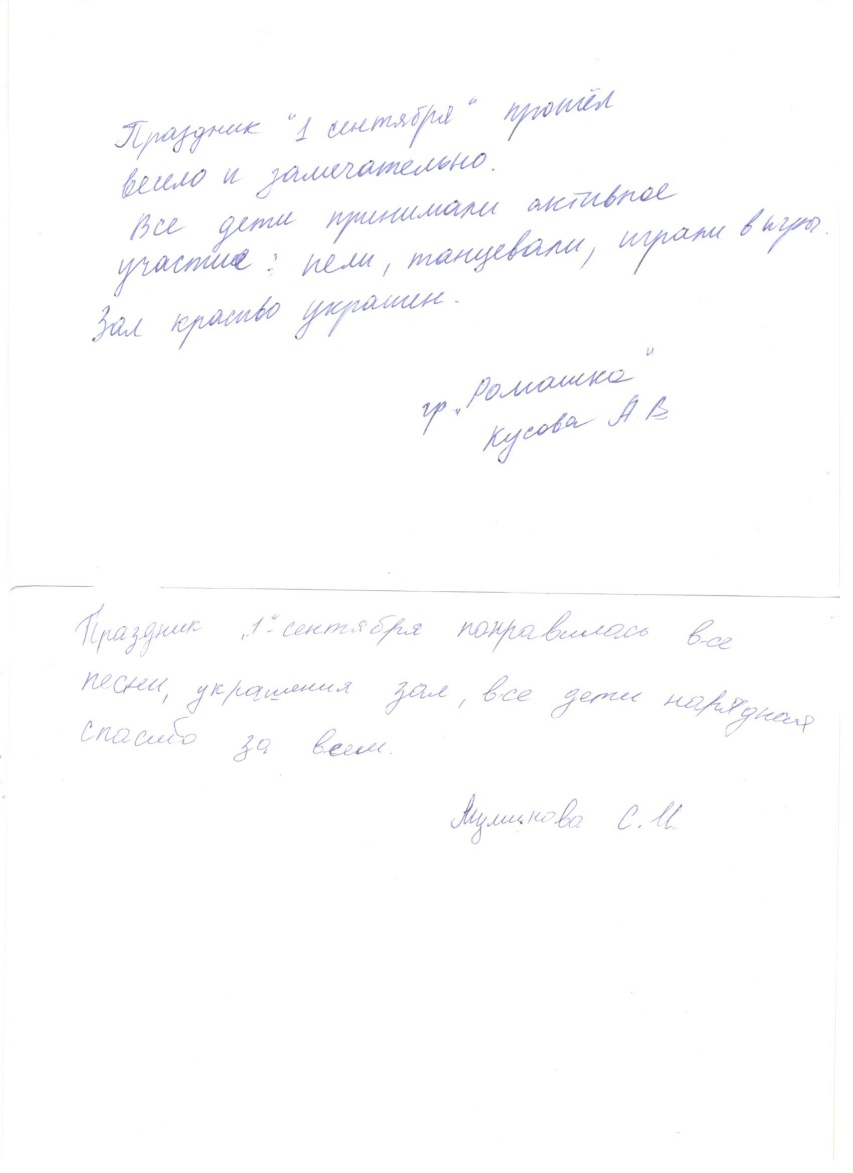 Праздник "1 сентября" прошёл
весело и замечательно.
Все дети принимали активное
участие: пели, танцевали, играли в игры.
Зал красиво украшен.
гр „Ромашка"
Кусова А В
Праздник „1"- сентября понравилось все
песни, украшения зал, все дети нарядная
спасибо за всем.
Муминова С.И.